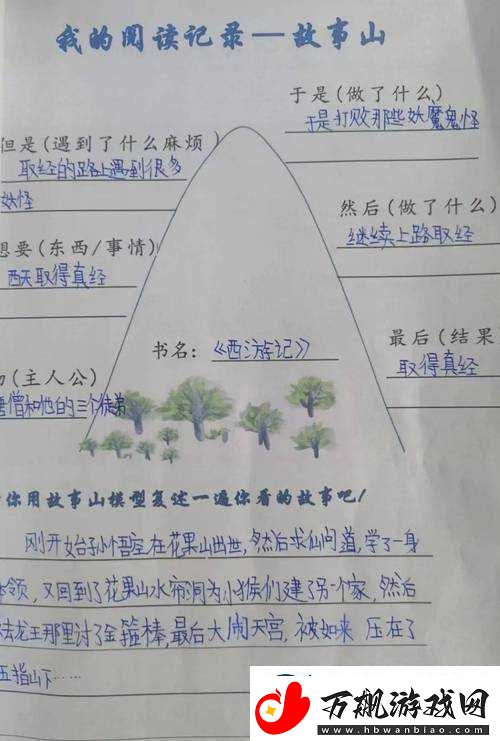 我的阅读记录—故事山
于是(做了什么)
于是打败那些妖魔鬼怪
但是(遇到了什么麻烦)
取经的路上遇到很多
妖怪
然后(做了什么)
继续上路取经
想要(东西/事情)
西天取得真经
最后(结果
取得真经
书名:《西游记》
(主人公)
唐僧和他的三个徒弟
你用故事山模型复述一遍你看的故事吧!
刚开始孙悟空在花果山出世,然后求仙问道,学了一身
本领,又回到了花果山水帘洞为小猴们建了另一个家,然后
龙王那里讨了金箍棒,最后大闹天宫,被如来 压在了
五指山下……
万飙游戏网
www.hbwanbiao.com